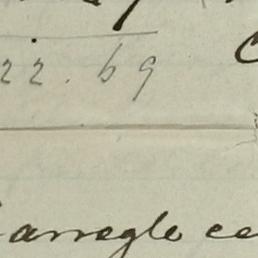 22.69
arreglo ce